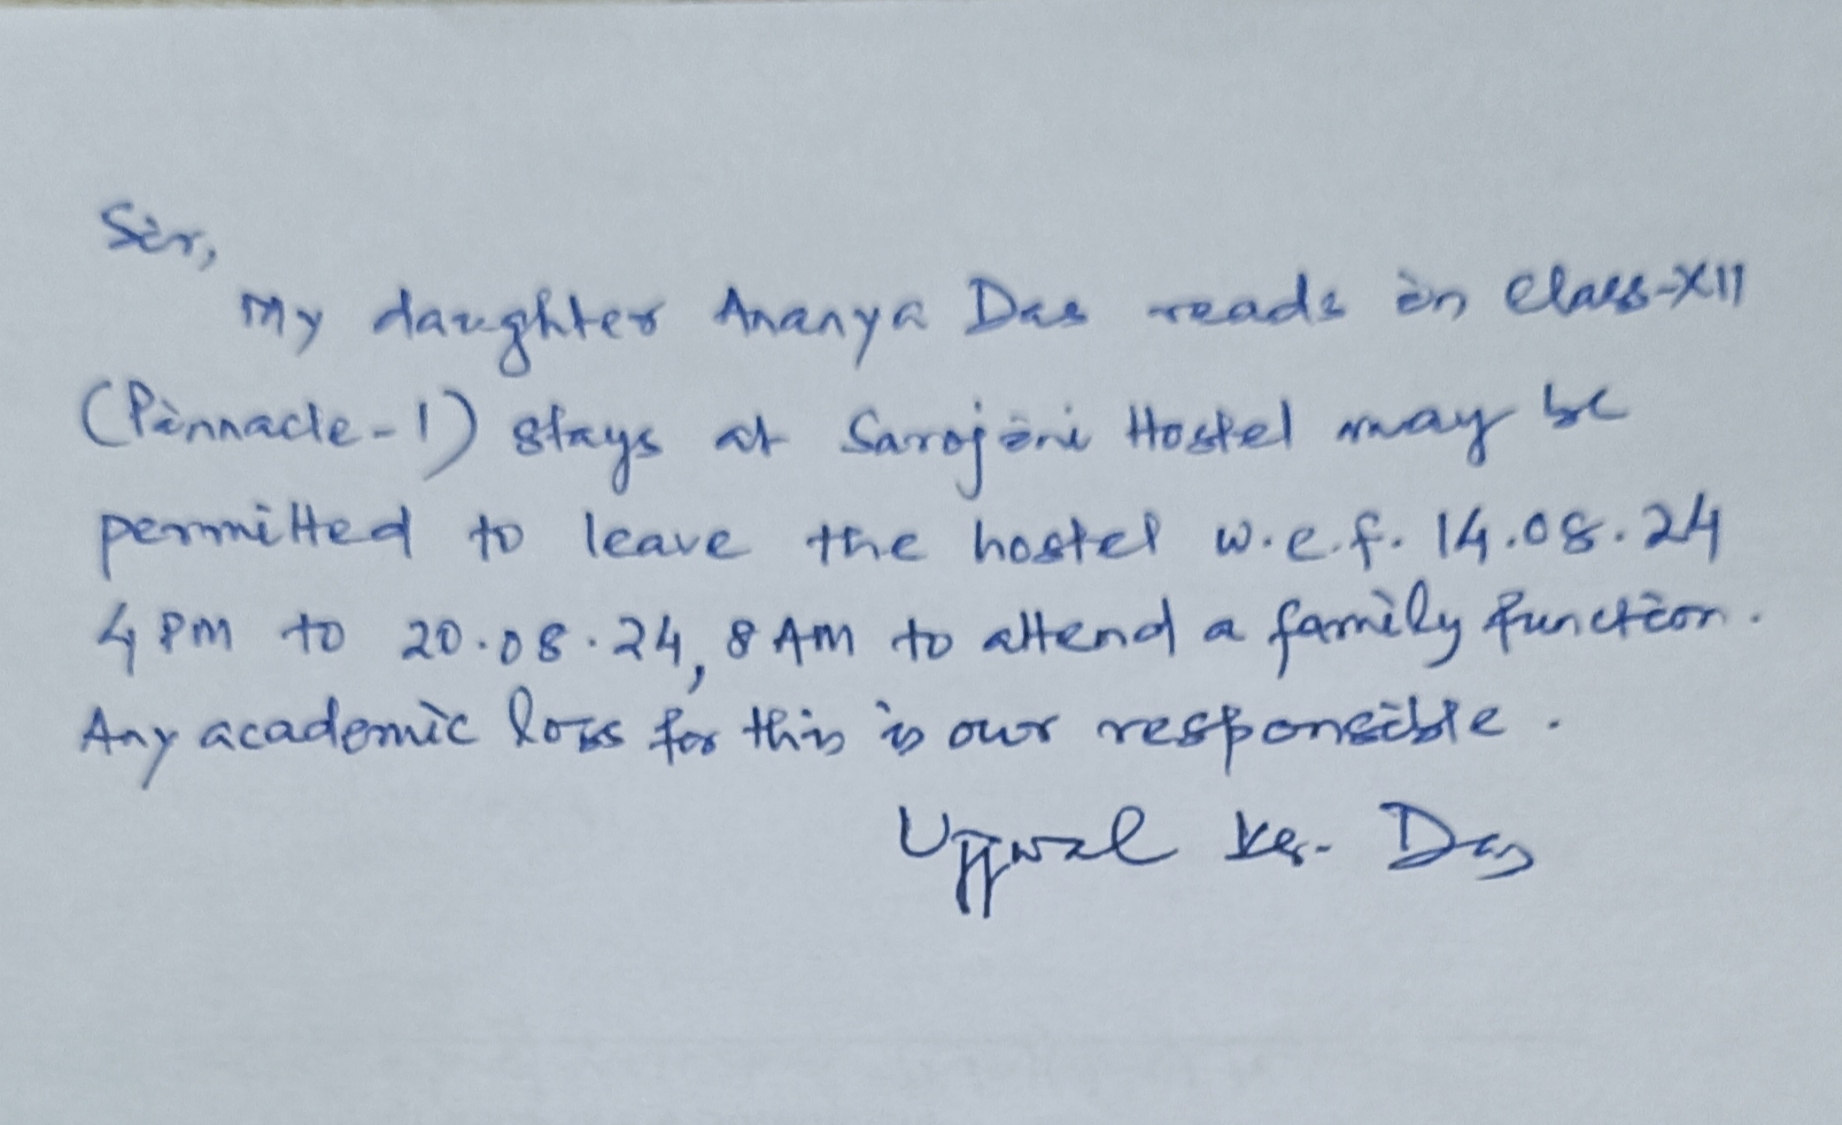 Sir,
My daughter Ananya Das reads in Class-XII
(Pinnacle-1) stays at Sarojini Hostel may be
permitted to leave the hostel w.e.f. 14.08.24
4 PM to 20.08.24, 8 AM to attend a family function.
Any academic loss for this is our responsible.
Ujjwal Kr. Das